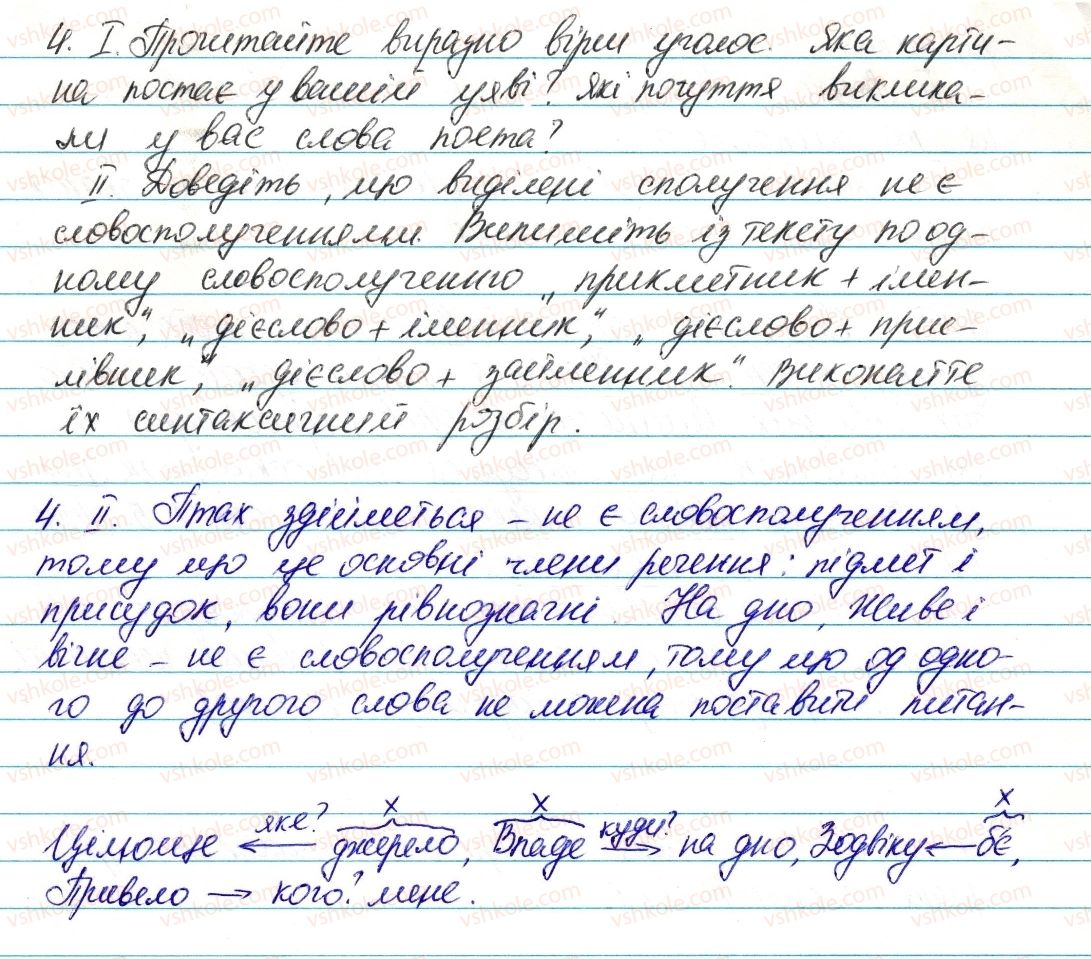 4. I. Прочитайте виразно вірш уголос. Яка карти-
на постає у вашій уяві? Які почуття виклика-
ли у вас слова поета?
II. Доведіть, що виділені сполучення не є
словосполученнями. Випишіть із тексту по од-
ному словосполученню „прикметник + імен-
ник", „дієслово + іменник", „дієслово + прис-
лівник", „дієслово + займенник". Виконайте
їх синтаксичний розбір.
4. II. Птах здійметься – не є словосполученням,
тому що це основні члени речення: підмет і
присудок, вони рівнозначні. На дно, живе і
вічне – не є словосполученням, тому що од одно-
го до другого слова не можна поставити питан-
ня.
х х х
яке? куди?
Цілюще ← джерело, Впаде → на дно, Зодвіку ← б'є,
Привело → кого? мене.